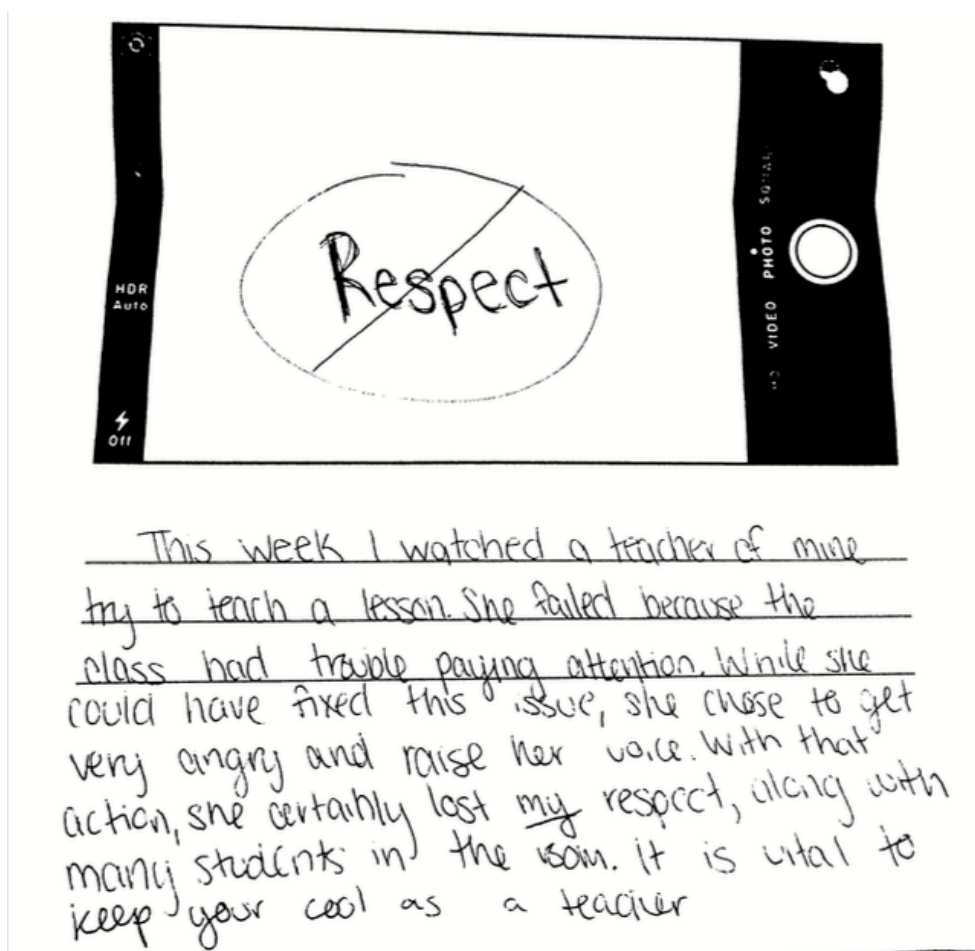 HDR
Auto
Off
Respect
VIDEO PHOTO
This week I watched a teacher of mine
try to teach a lesson. She failed because the
class had trouble paying attention. While she
could have fixed this issue, she chose to get
very angry and raise her voice. With that
action, she certainly lost my respect, along with
many students in the room. It is vital to
keep your cool as a teacher